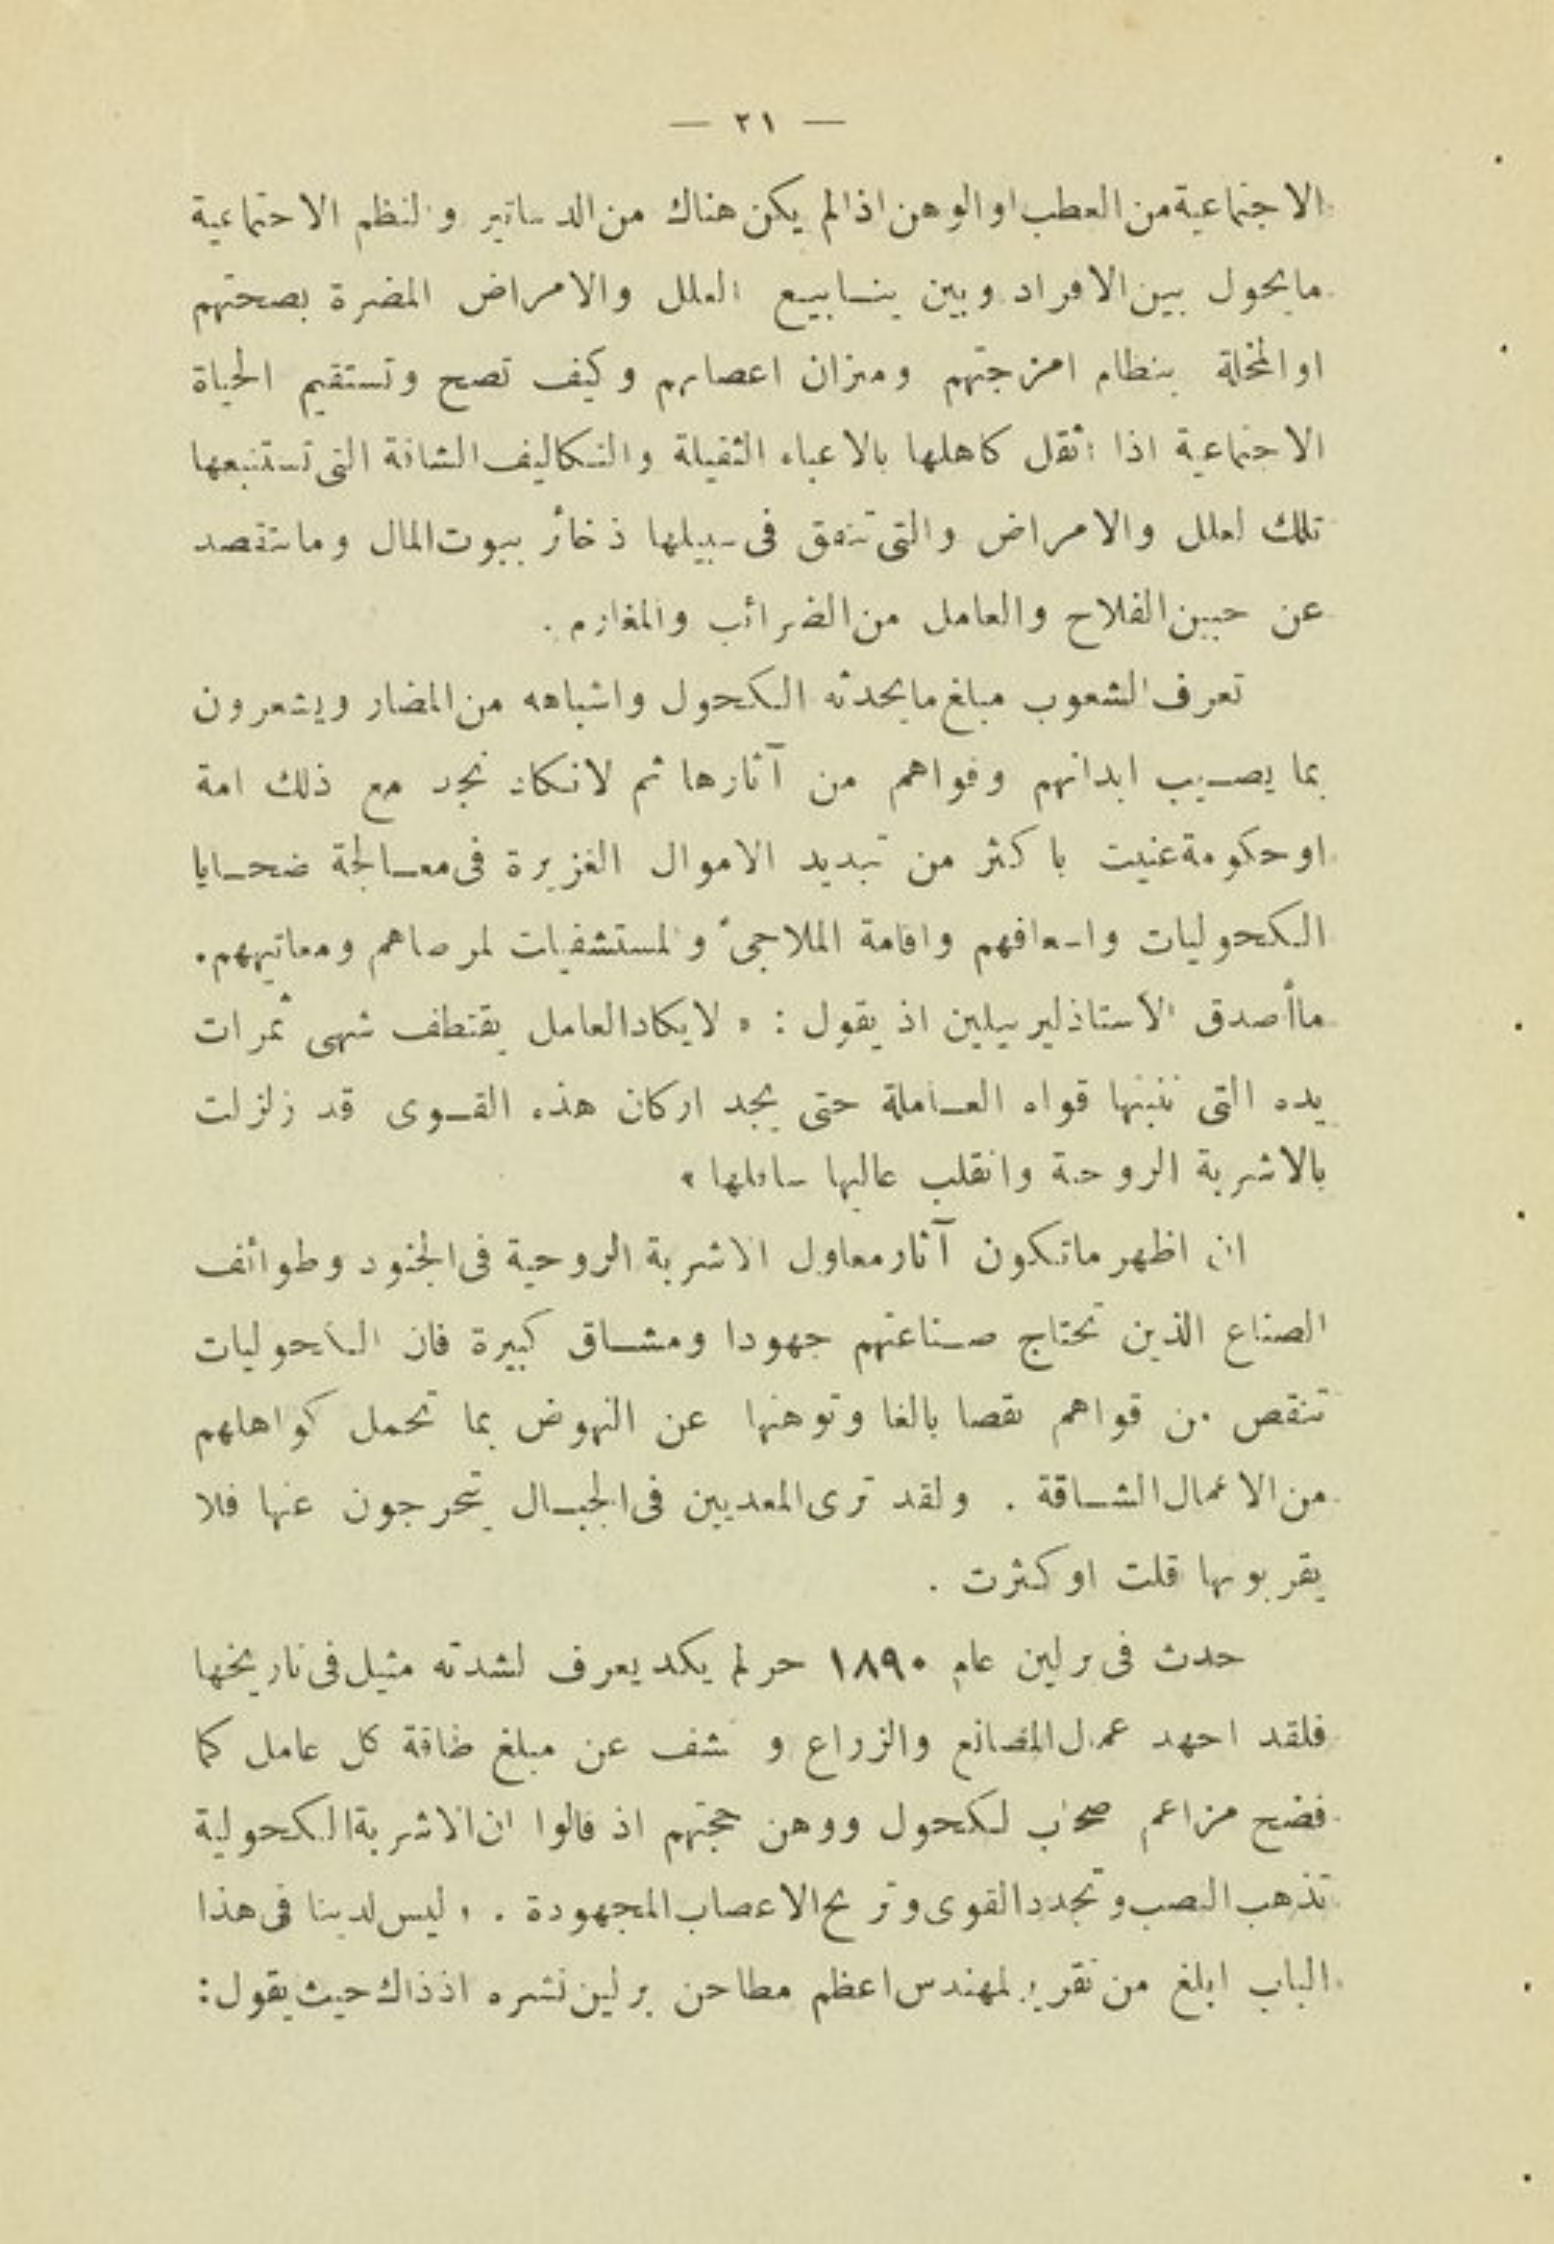 — ٢١ —
الاجتماعية من العطب او الوهن اذا لم يكن هناك من الدساتير والنظم الاجتماعية
ما يحول بين الافراد وبين ينابيع العلل والامراض المضرة بصحتهم
او المخلة بنظام امزجتهم وميزان اعصابهم وكيف تصح وتستقيم الحياة
الاجتماعية اذا اثقل كاهلها بالاعباء الثقيلة والتكاليف الشاقة التى تستتبعها
تلك العلل والامراض والتى تنفق فى سبيلها ذخائر بيوت المال وما يتفصد
عن جبين الفلاح والعامل من الضرائب والمغارم .
تعرف الشعوب مبلغ ما يحدثه الكحول واشباهه من المضار ويشعرون
بما يصيب ابدانهم وقواهم من آثارها ثم لا نكاد نجد مع ذلك امة
او حكومة عنيت باكثر من تبديد الاموال الغزيرة فى معالجة ضحايا
الكحوليات واسعافهم واقامة الملاجىء والمستشفيات لمرضاهم ومعاتيههم .
ما أصدق الاستاذ ليربيلين اذ يقول : « لا يكاد العامل يقتطف شهى ثمرات
يده التى تنبتها قواه العاملة حتى يجد اركان هذه القوى قد زلزلت
بالاشربة الروحية وانقلب عاليها سافلها »
ان اظهر ما تكون آثار معاول الاشربة الروحية فى الجنود وطوائف
الصناع الذين تحتاج صناعتهم جهودا ومشاق كبيرة فان الكحوليات
تنقص من قواهم نقصا بالغا وتوهنها عن النهوض بما تحمل كواهلهم
من الاعمال الشاقة . ولقد ترى المعدنيين فى الجبال يتحرجون عنها فلا
يقربونها قلت او كثرت .
حدث فى برلين عام ١٨٩٠ حر لم يكد يعرف لشدته مثيل فى تاريخها
فلقد اجهد عمال المصانع والزراع وكشف عن مبلغ طاقة كل عامل كما
فضح مزاعم صحاب الكحول ووهن حجتهم اذ قالوا ان الاشربة الكحولية
تذهب النصب وتجدد القوى وتريح الاعصاب المجهودة . وليس لدينا فى هذا
الباب ابلغ من تقرير لمهندس اعظم مطاحن برلين نشره اذ ذاك حيث يقول :